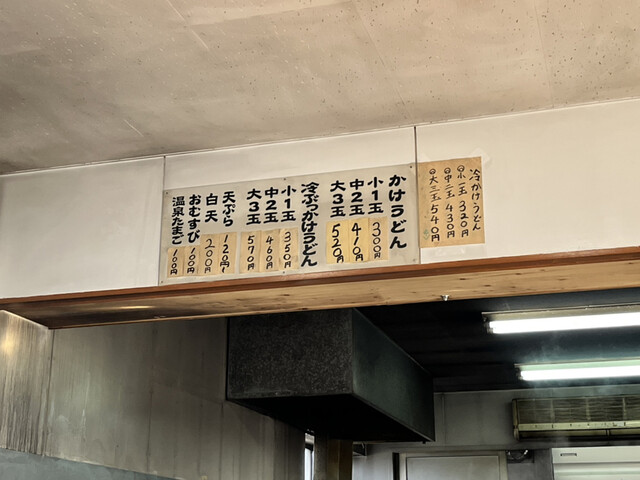 冷かけうどん
㋹小一玉 320円
㋹中二玉 430円
㋹大三玉 540円
かけうどん
小1玉 300円
中2玉 410円
大3玉 520円
冷ぶっかけうどん
小1玉 350円
中2玉 460円
大3玉 570円
天ぷら 120円
白天 200円
おむすび 100円
温泉たまご 100円